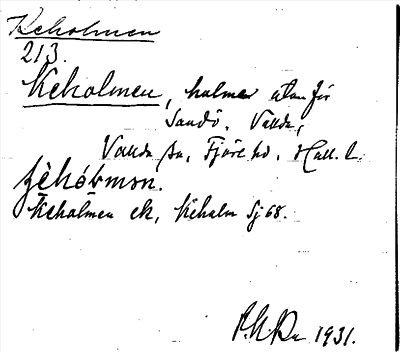 Keholmen
213.
Keholmen, holmar utanför
Sandö, Vallda,
Vallda sn, Fjäre hd, Hall. l.
Keholmen ek, Kiholm Sj 68.
1931.